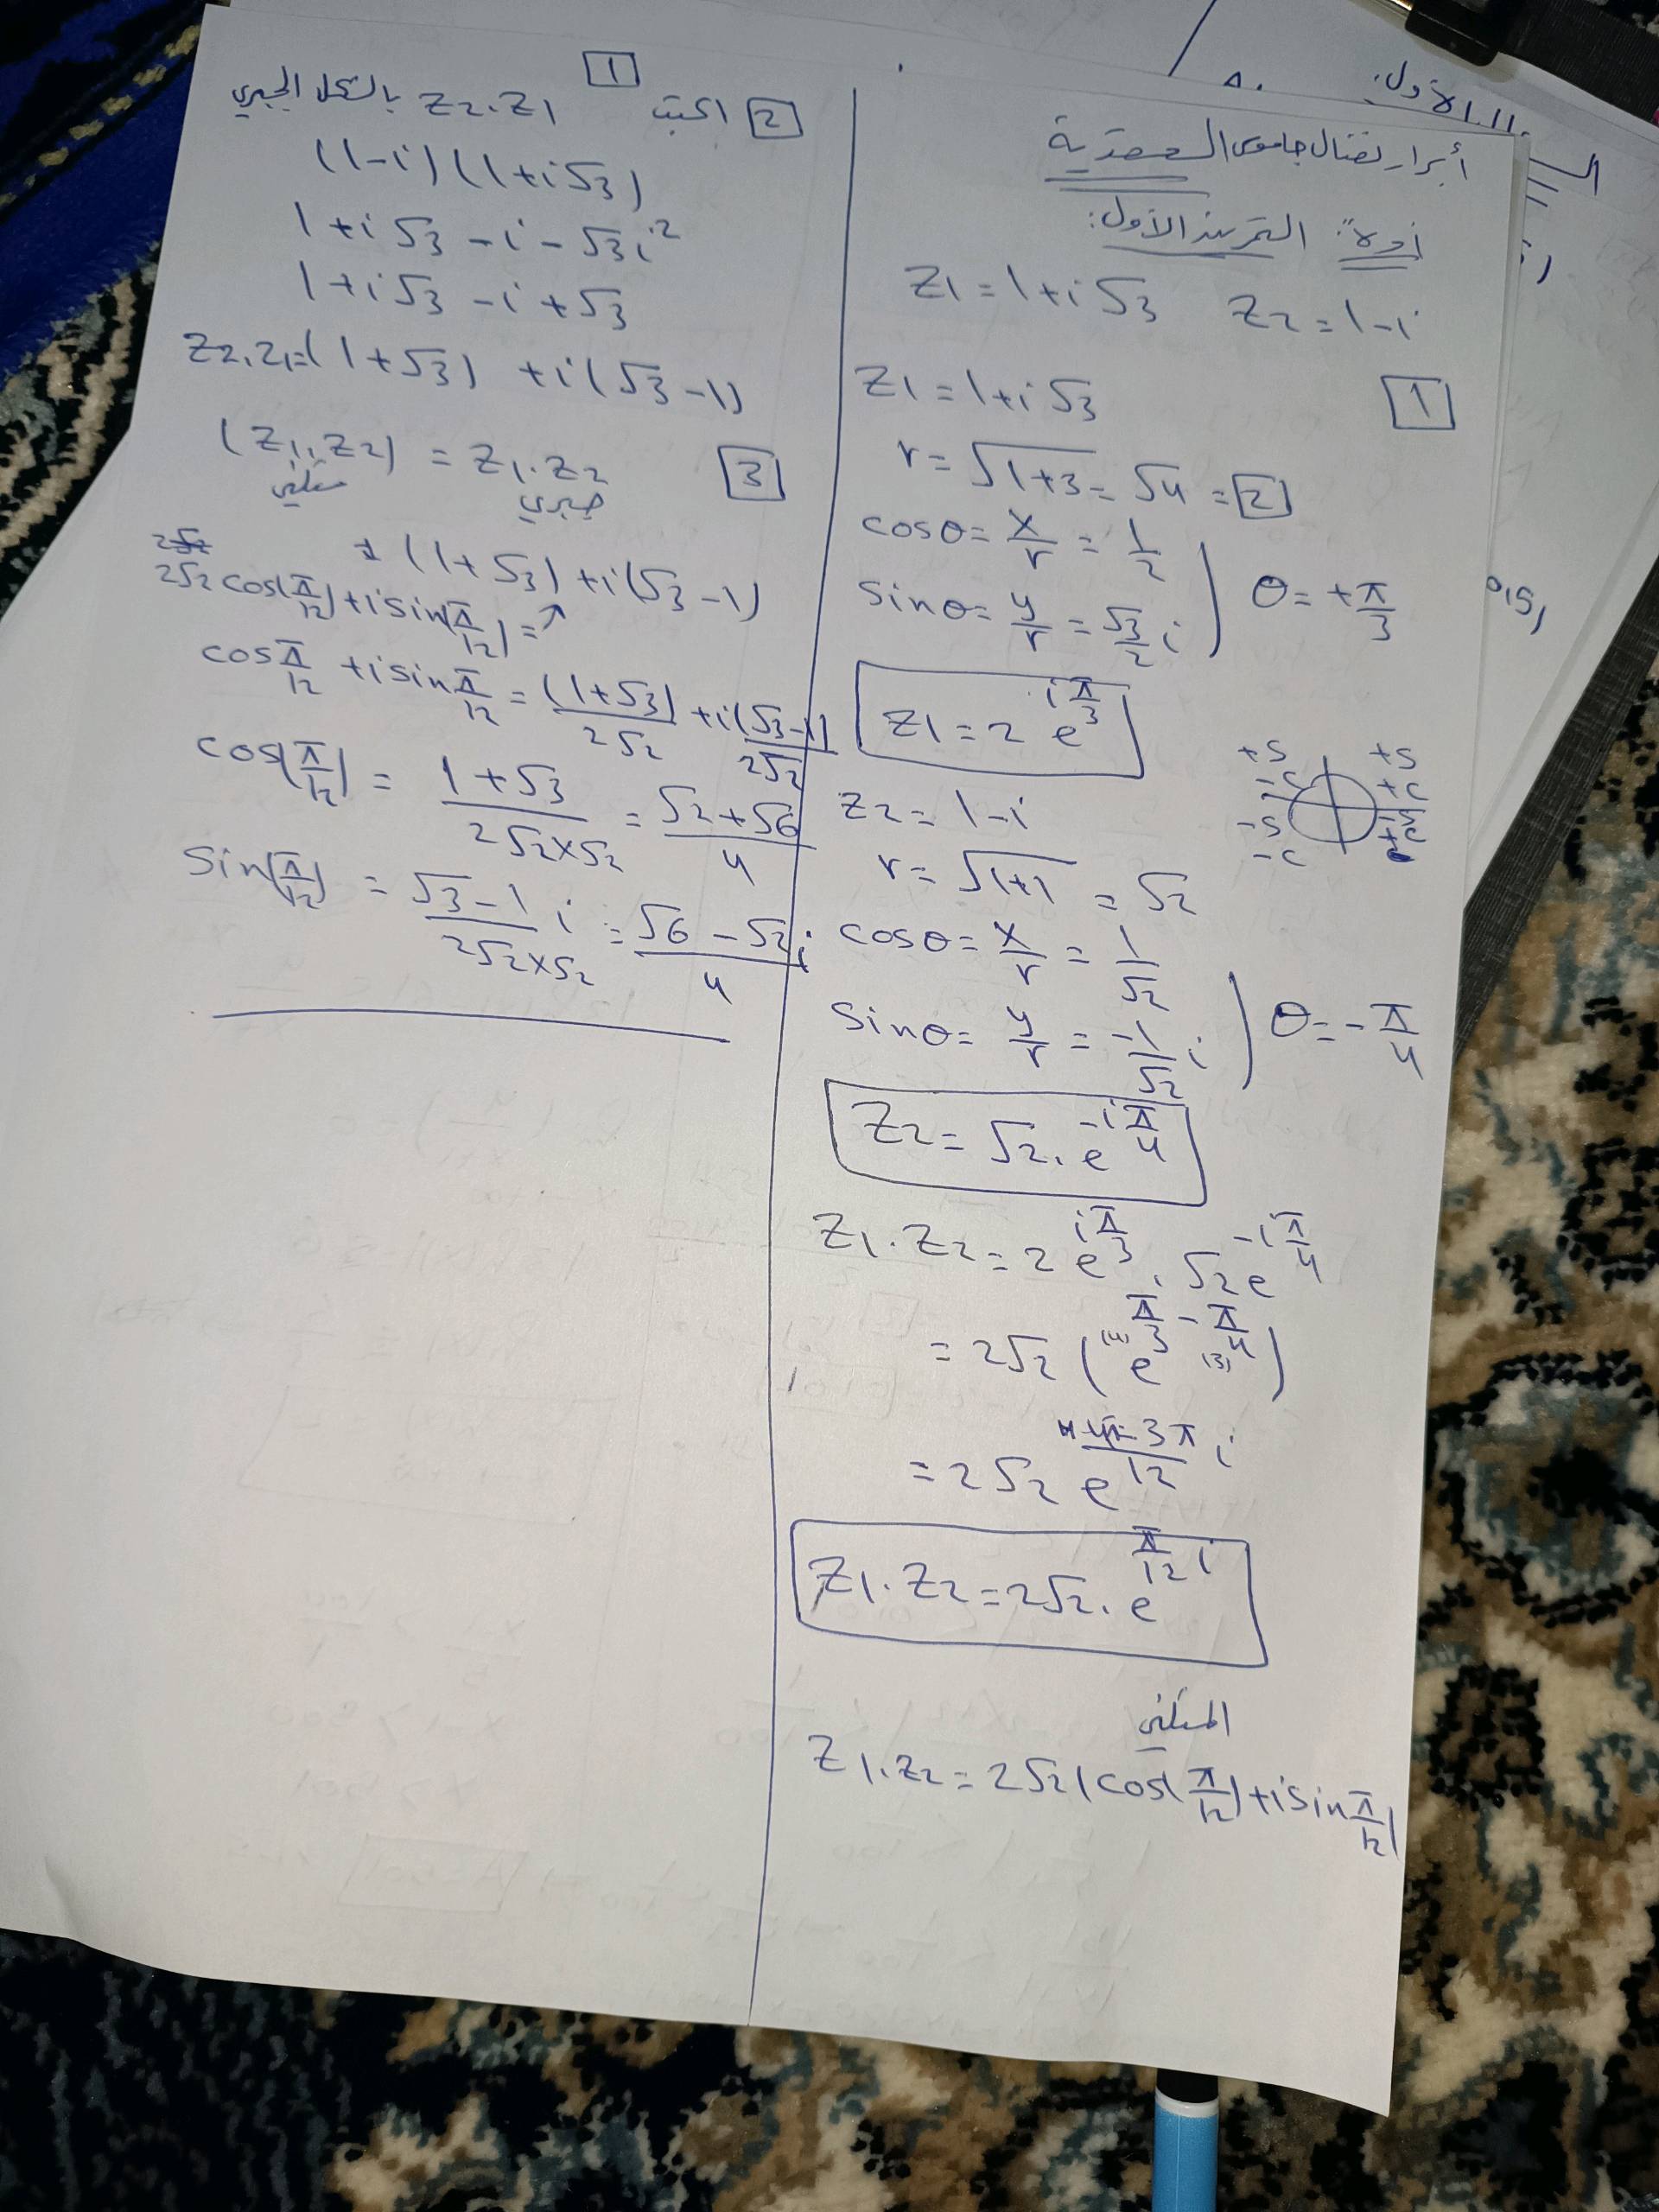 أبرار نضال جاموس الصعدية
أولاً: التمرين الأول:
Z1 = 1+i√3   Z2 = 1-i
1
Z1 = 1+i√3
r = √1+3 = √4 = 2
cosθ = x/r = 1/2
sinθ = y/r = √3/2 i
θ = +π/3
Z1 = 2 e^iπ/3
+S +S
-C +C
-S
-C
Z2 = 1-i
r = √1+1 = √2
cosθ = x/r = 1/√2
sinθ = y/r = -1/√2 i
θ = -π/4
Z2 = √2 . e^-iπ/4
Z1 . Z2 = 2 e^iπ/3 . √2 e^-iπ/4
= 2√2 (e^π/3 - π/4) (4) (3)
= 2√2 e^4π-3π/12 i
Z1 . Z2 = 2√2 . e^π/12 i
المثلثي
Z1.Z2 = 2√2 (cos(π/12) + i sin π/12)
1
2 اكتب Z2.Z1 بالشكل الجبري
(1-i)(1+i√3)
1+i√3 - i - √3 i²
1+i√3 - i + √3
Z2.Z1 = (1+√3) + i(√3-1)
3 (Z1.Z2) = Z1.Z2
مثلثي جبري
(1+√3) + i(√3-1)
2√2 cos(π/12) + i sin(π/12) = ↗
cos π/12 + i sin π/12 = (1+√3)/2√2 + i(√3-1)/2√2
cos(π/12) = 1+√3/2√2×√2 = √2+√6/4
sin(π/12) = √3-1/2√2×√2 i = √6-√2/4 i
الأول: